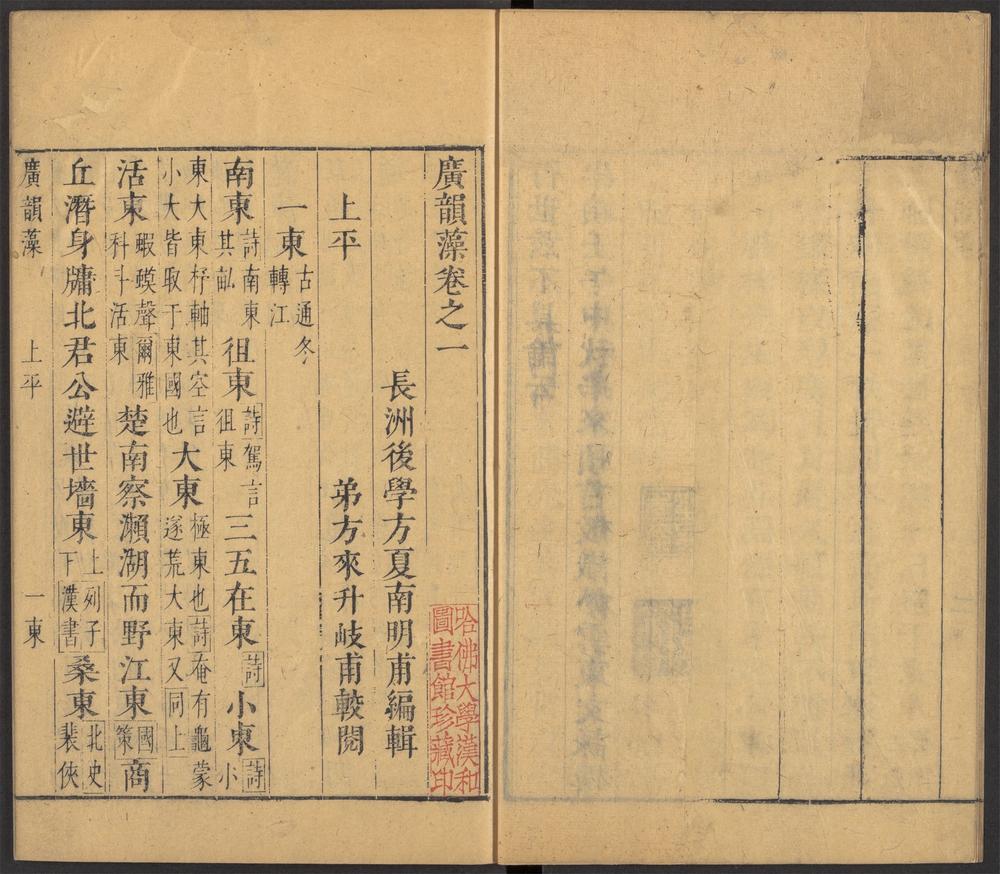 廣韻藻卷之一
哈佛大學漢和
圖書館珍藏印
長洲後學方夏南明甫編輯
上平　弟方來升岐甫較閱
一東古通冬轉江
南東詩南東其畝徂東詩駕言徂東三五在東詩小東詩小
東大東杼軸其空言小大皆取于東國也大東極東也詩奄有龜蒙遂荒大東又同上
活東蝦蟆聲爾雅科斗活東楚南察瀨湖而野江東國策商
丘潛身牖北君公避世墻東上列子下漢書桑東北史裴俠
廣韻藻　上平　一東